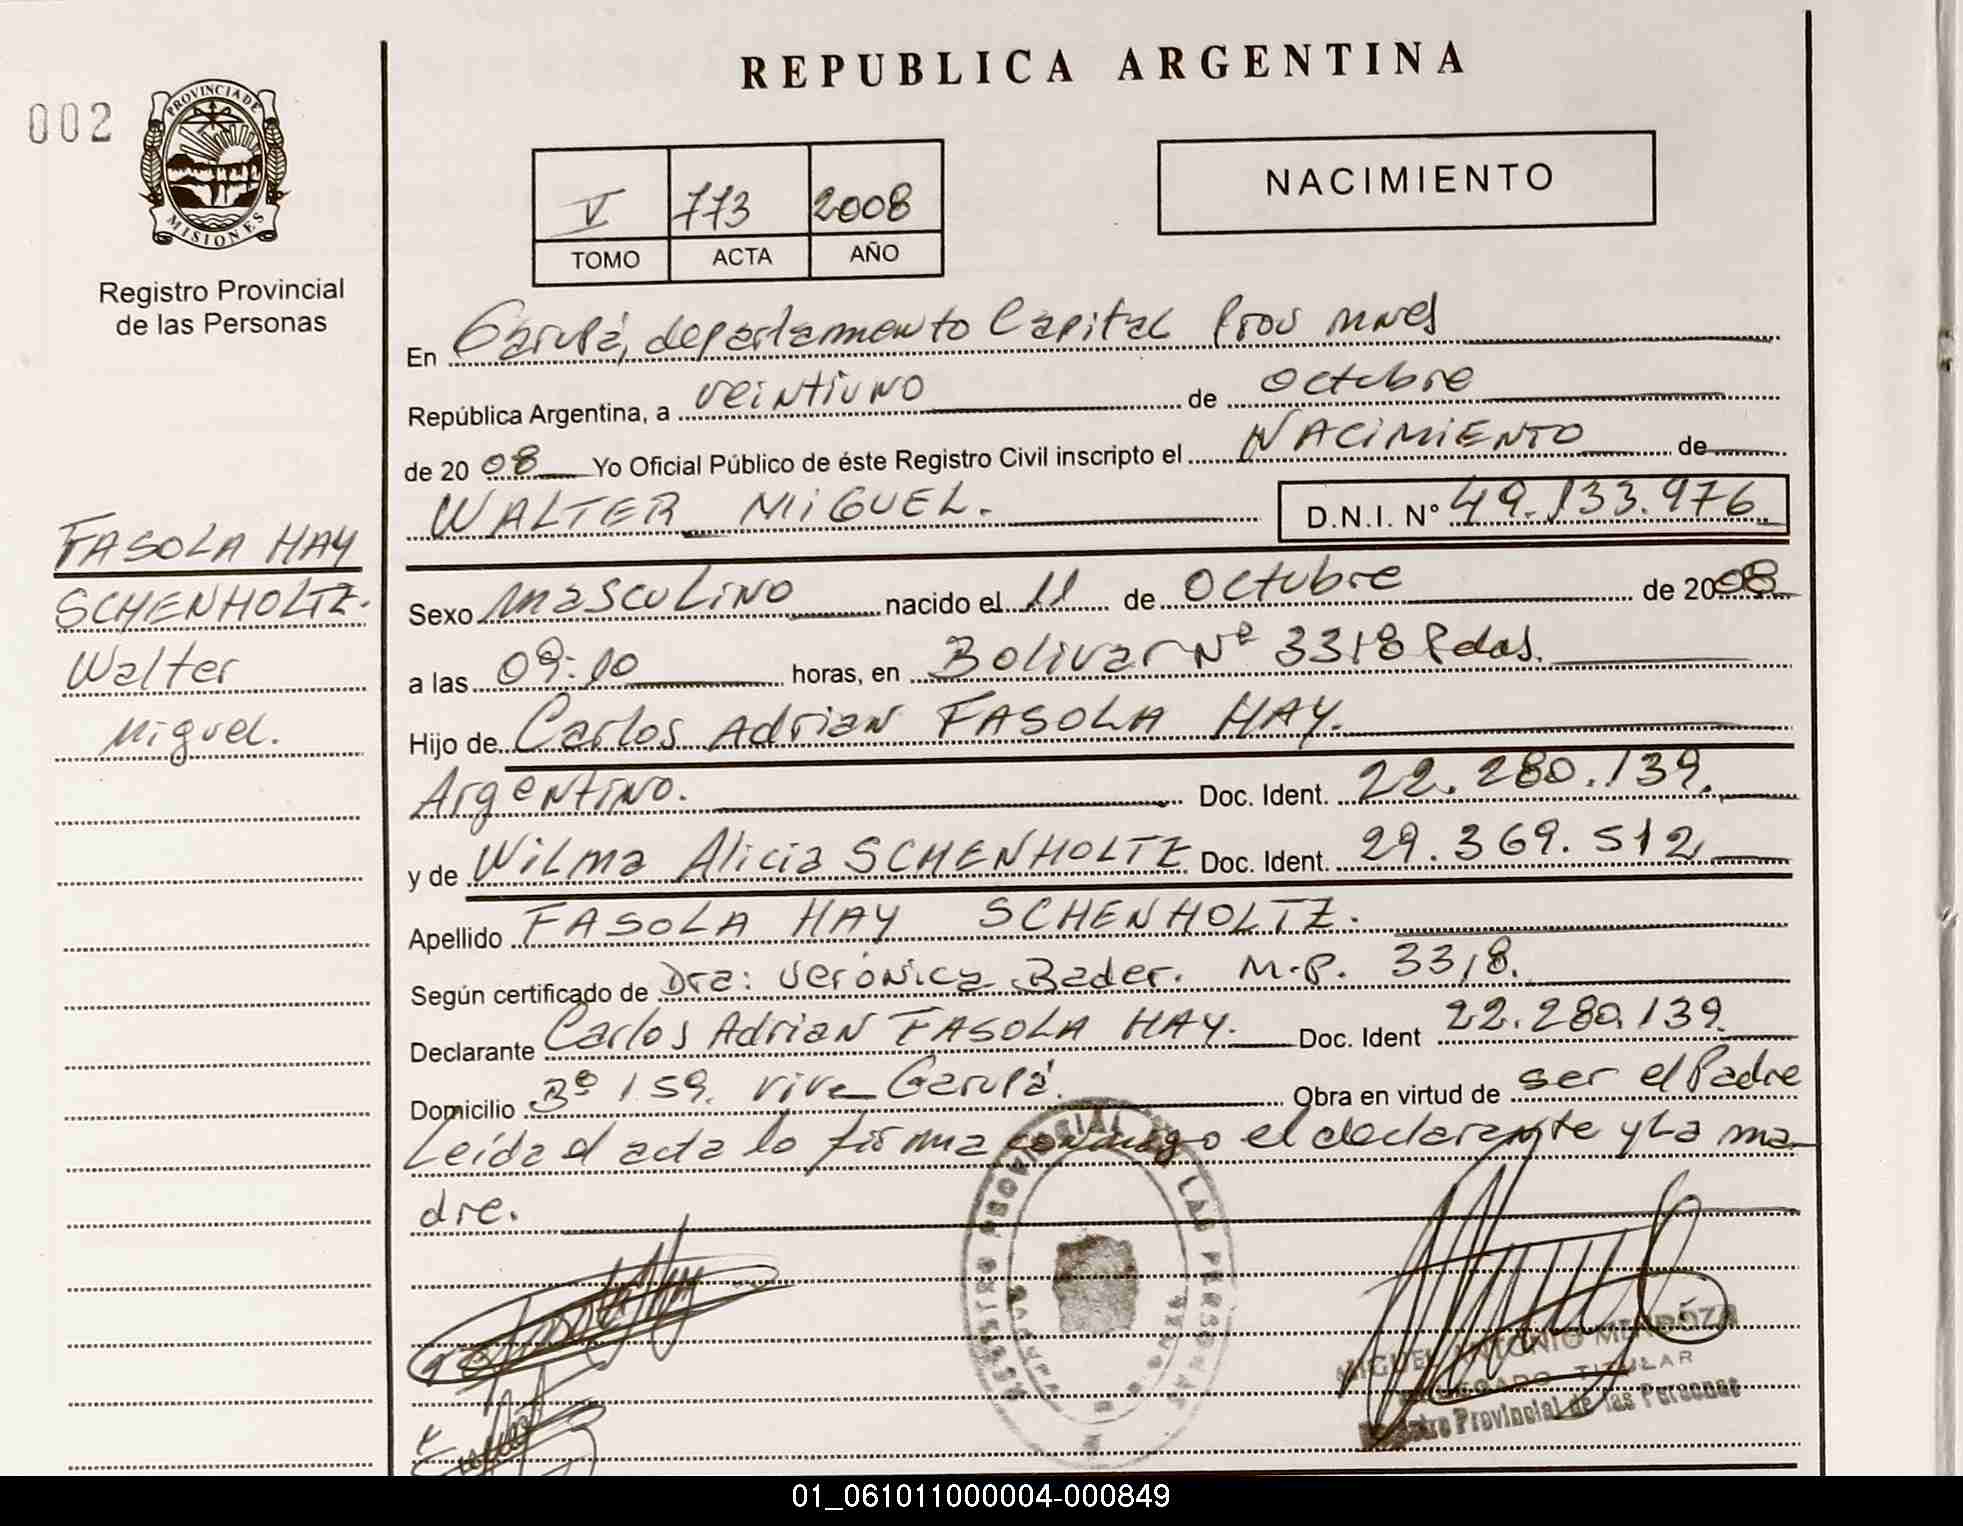 REPUBLICA ARGENTINA
002
PROVINCIA DE
MISIONES
Registro Provincial
de las Personas
V 773 2008
TOMO ACTA AÑO
NACIMIENTO
En Garupá, departamento Capital Prov mnes
República Argentina, a veintiuno de octubre
de 2008 Yo Oficial Público de éste Registro Civil inscripto el NACIMIENTO de
WALTER MIGUEL. D.N.I. N° 49.133.976
FASOLA HAY
SCHENHOLTZ.
Walter
Miguel.
Sexo masculino nacido el 11 de Octubre de 2008
a las 09:10 horas, en Bolivar Nº 3318 Pdas.
Hijo de Carlos Adrian FASOLA HAY.
Argentino. Doc. Ident. 22.280.139.
y de Wilma Alicia SCHENHOLTZ Doc. Ident. 29.369.512
Apellido FASOLA HAY SCHENHOLTZ.
Según certificado de Dra: Verónica Bader. M.P. 3318.
Declarante Carlos Adrian FASOLA HAY. Doc. Ident 22.280.139.
Domicilio Bº 159. vive Garupá. Obra en virtud de ser el Padre
Leída el acta lo firma conmigo el declarante y La ma-
dre.
REGISTRO PROVINCIAL DE LAS PERSONAS
MIGUEL ANTONIO MENDOZA
DELEGADO TITULAR
Registro Provincial de las Personas
01_061011000004-000849